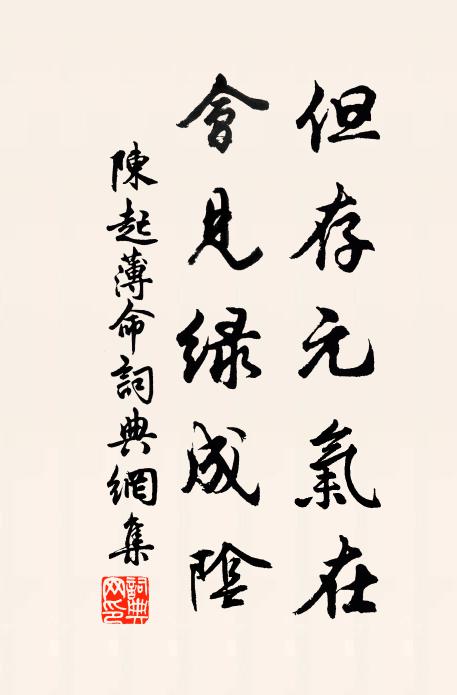 但存元氣在
會見綠成陰
陳起薄命詞典網集
詞典网印